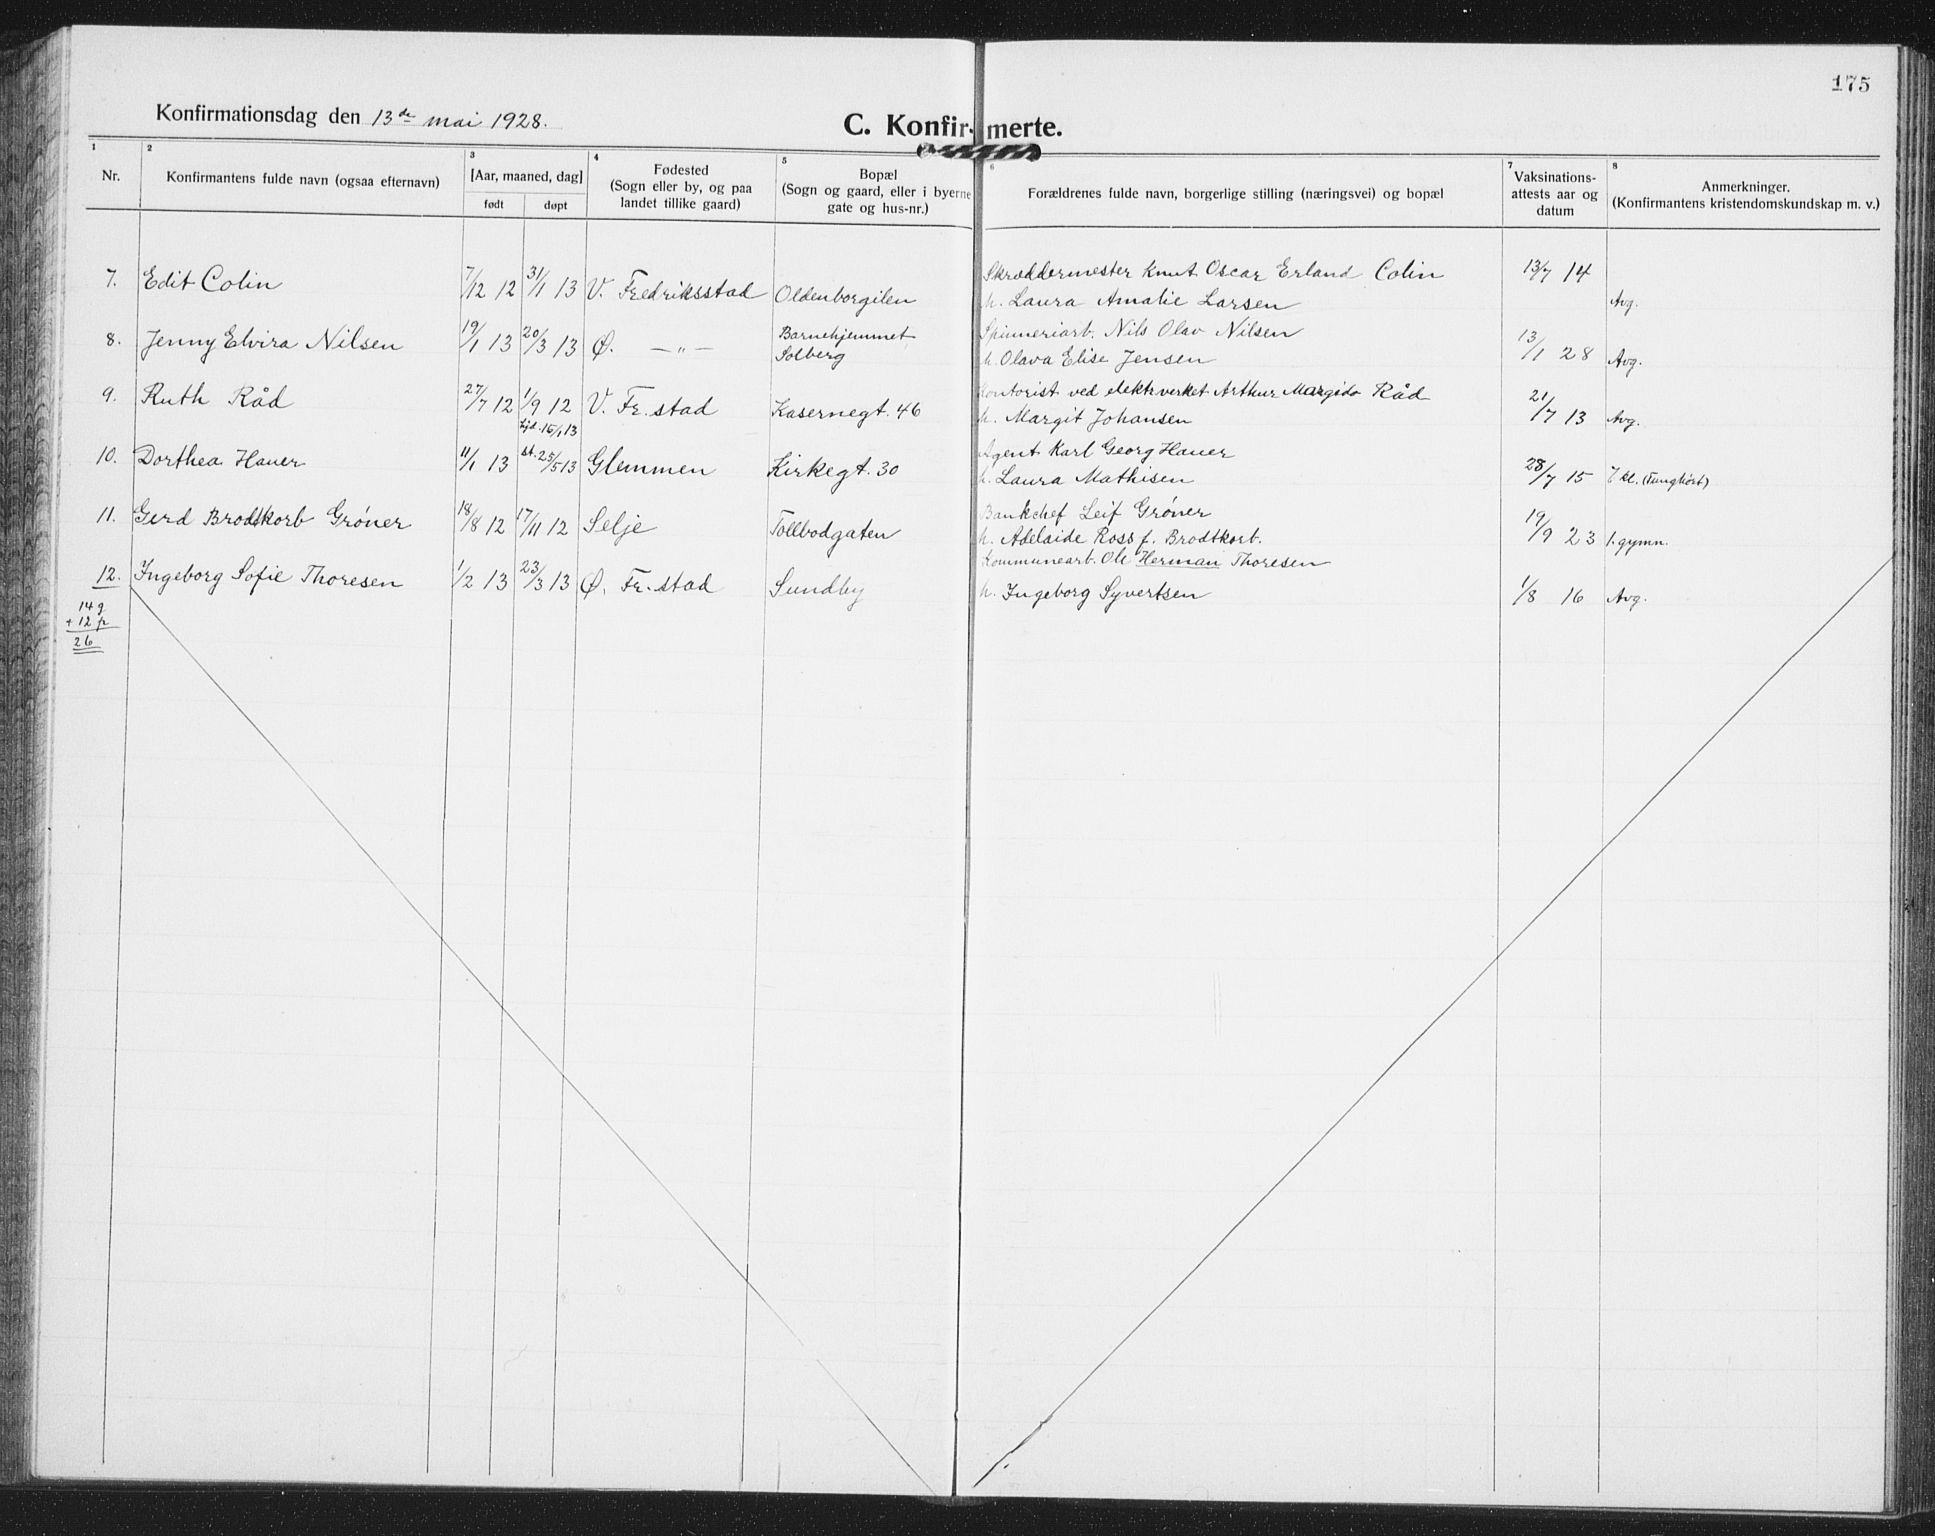 175
Konfirmationsdag den 13de mai 1928.
C. Konfirmerte.
1 2 3 4 5 6 7 8
Nr.
Konfirmantens fulde navn (ogsaa efternavn)
[Aar, maaned, dag]
født døpt
Fødested
(Sogn eller by, og paa
landet tillike gaard)
Bopæl
(Sogn og gaard, eller i byerne
gate og hus-nr.)
Forældrenes fulde navn, borgerlige stilling (næringsvei) og bopæl
Vaksinations-
attests aar og
datum
Anmerkninger.
(Konfirmantens kristendomskundskap m. v.)
7. Edit Colin 7/12 12 31/1 13 V. Fredriksstad Oldenborgilen Skræddermester Knut Oscar Erland Colin 13/7 14
h. Laura Amalie Larsen Avg.
8. Jenny Elvira Nilsen 19/1 13 20/3 13 Ø. —"— Barnehjemmet Spinneriarb. Nils Olav Nilsen 13/1 28
Solberg h. Olava Elise Jensen Avg.
9. Ruth Råd 27/7 12 1/9 12 V. Fr.stad Kasernegt. 46 Kontorist ved elektr.verket Arthur Margido Råd 21/7 13
kjd. 15/1 13 h. Margit Johansen Avg.
10. Dorthea Hauer 11/1 13 st. 25/5 13 Glemmen Kirkegt. 30 Agent Karl Georg Hauer
h. Laura Mathisen 28/7 15 7 kl. (Tunghørt)
11. Gerd Brodtkorb Grøner 18/8 12 17/11 12 Selje Tollbodgaten Bankchef Leif Grøner 19/9 23
h. Adelaide Ross f. Brodtkorb. 1. gymn.
12. Ingeborg Sofie Thoresen 1/2 13 23/3 13 Ø. Fr.stad Sundby Kommunearb. Ole Herman Thoresen
h. Ingeborg Syvertsen 1/8 16 Avg.
14 g
+ 12 p
26